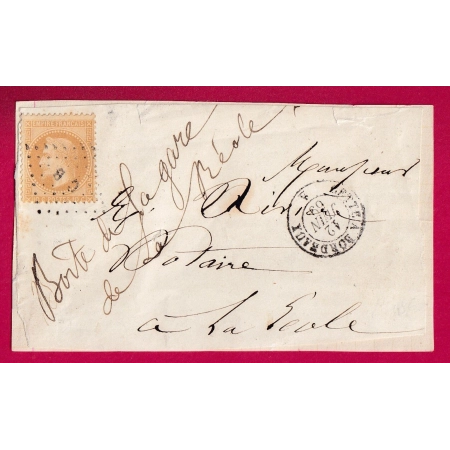 EMPIRE FRANÇAIS
Boite de la gare
de La Réole
Monsieur
E.
Notaire
à La Réole
A BORDEAUX
12
JUIN
68